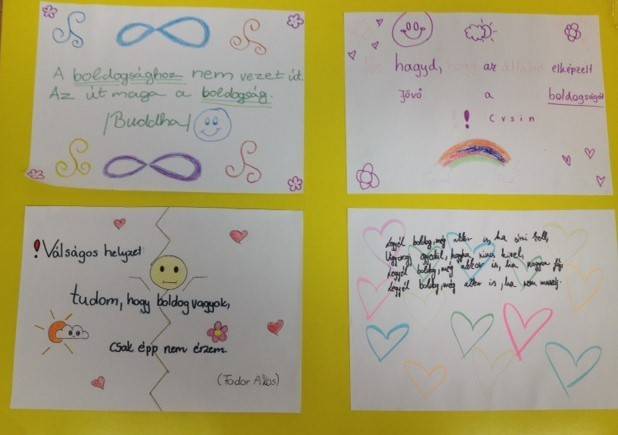 A boldogsághoz nem vezet út.
Az út maga a boldogság.
/Buddha/
hagyd, hogy az elképzelt
Jövő a boldogságát
!
! Válságos helyzet:
tudom, hogy boldog vagyok,
csak épp nem érzem.
(Fodor Ákos)
Legyél boldog, még akkor is, ha sírni kell,
Legyél boldog, még akkor is, ha nagyon fáj,
Legyél boldog, még akkor is, ha nem